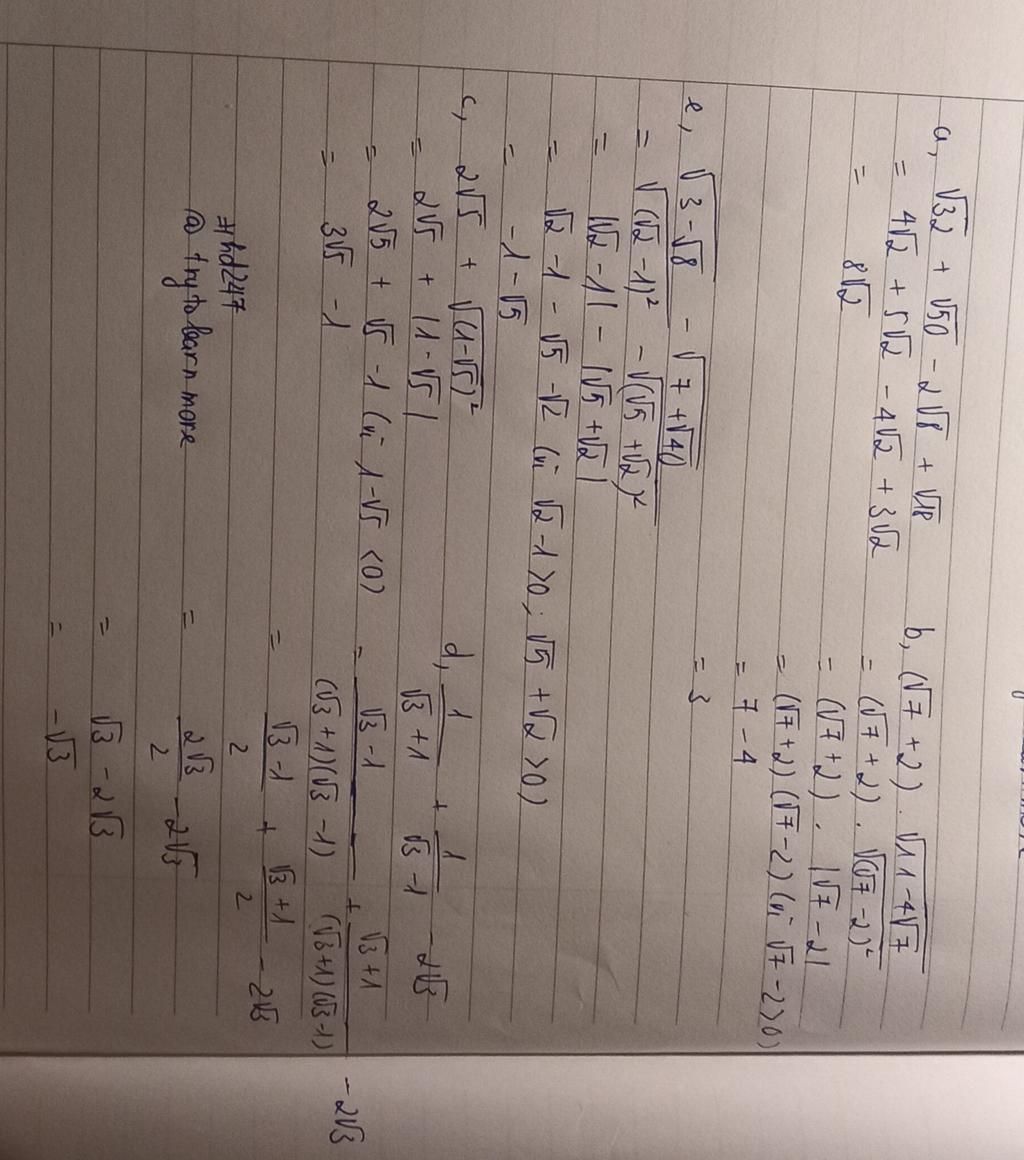 a, √32 + √50 - 2√8 + √18
= 4√2 + 5√2 - 4√2 + 3√2
= 8√2
b, (√7 + 2) . √(11 - 4√7)
= (√7 + 2) . √((√7 - 2)²)
= (√7 + 2) . |√7 - 2|
= (√7 + 2) (√7 - 2) (vì √7 - 2 > 0)
= 7 - 4
= 3
e, √(3 - √8) - √(7 + √40)
= √((√2 - 1)²) - √((√5 + √2)²)
= |√2 - 1| - |√5 + √2|
= √2 - 1 - √5 - √2 (vì √2 - 1 > 0; √5 + √2 > 0)
= -1 - √5
c, 2√5 + √((1 - √5)²)
= 2√5 + |1 - √5|
= 2√5 + √5 - 1 (vì 1 - √5 < 0)
= 3√5 - 1
d, 1/(√3 + 1) + 1/(√3 - 1) - 2√3
= (√3 - 1)/((√3 + 1)(√3 - 1)) + (√3 + 1)/((√3 + 1)(√3 - 1)) - 2√3
= (√3 - 1)/2 + (√3 + 1)/2 - 2√3
= 2√3/2 - 2√3
= √3 - 2√3
= -√3
#hd247
@ try to learn more